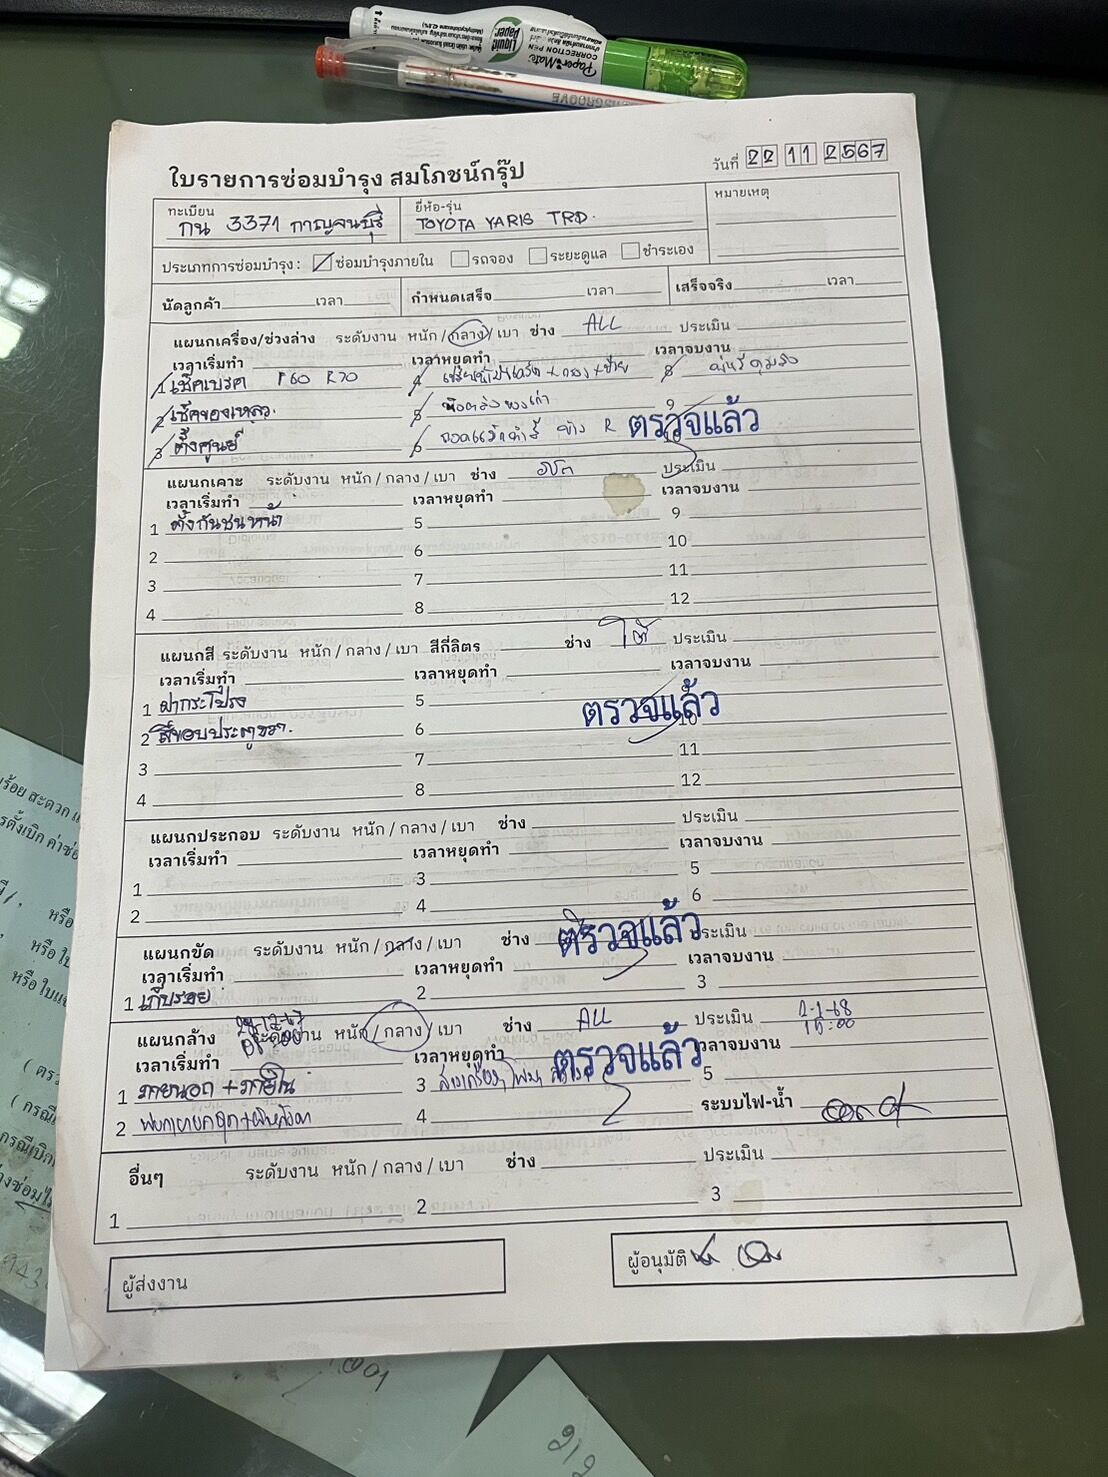 Liquid Paper
Paper Mate
CORRECTION PEN
ใบรายการซ่อมบำรุง สมโภชน์กรุ๊ป
วันที่ 22 11 2567
ทะเบียน
กน 3371 กาญจนบุรี
ยี่ห้อ-รุ่น
TOYOTA YARIS TRD.
หมายเหตุ
ประเภทการซ่อมบำรุง : ซ่อมบำรุงภายใน รถจอง ระยะดูแล ชำระเอง
นัดลูกค้า เวลา กำหนดเสร็จ เวลา เสร็จจริง เวลา
แผนกเครื่อง/ช่วงล่าง ระดับงาน หนัก / กลาง / เบา ช่าง ALL ประเมิน
เวลาเริ่มทำ เวลาหยุดทำ เวลาจบงาน
1 เช็คเบรค F60 R70 4 8
2 เช็คของเหลว. 5 9
3 ตั้งศูนย์ 6 10
ตรวจแล้ว
แผนกเคาะ ระดับงาน หนัก / กลาง / เบา ช่าง ประเมิน
เวลาเริ่มทำ เวลาหยุดทำ เวลาจบงาน
1 ตั้งกันชนหน้า 5 9
2 6 10
3 7 11
4 8 12
แผนกสี ระดับงาน หนัก / กลาง / เบา สีกี่ลิตร ช่าง ใต้ ประเมิน
เวลาเริ่มทำ เวลาหยุดทำ เวลาจบงาน
1 ฝากระโปรง 5
2 สีขอบประตูขวา. 6 10
ตรวจแล้ว
3 7 11
4 8 12
แผนกประกอบ ระดับงาน หนัก / กลาง / เบา ช่าง ประเมิน
เวลาเริ่มทำ เวลาหยุดทำ เวลาจบงาน
1 3 5
2 4 6
แผนกขัด ระดับงาน หนัก / กลาง / เบา ช่าง ประเมิน
ตรวจแล้ว
เวลาเริ่มทำ เวลาหยุดทำ เวลาจบงาน
1 เก็บรอย 2 3
แผนกล้าง ระดับงาน หนัก / กลาง / เบา ช่าง ALL ประเมิน 2-1-68
15:00
เวลาเริ่มทำ เวลาหยุดทำ เวลาจบงาน
ตรวจแล้ว
1 ภายนอก + ภายใน 3 5
2 4 ระบบไฟ-น้ำ
อื่นๆ ระดับงาน หนัก / กลาง / เบา ช่าง ประเมิน
1 2 3
ผู้ส่งงาน
ผู้อนุมัติ